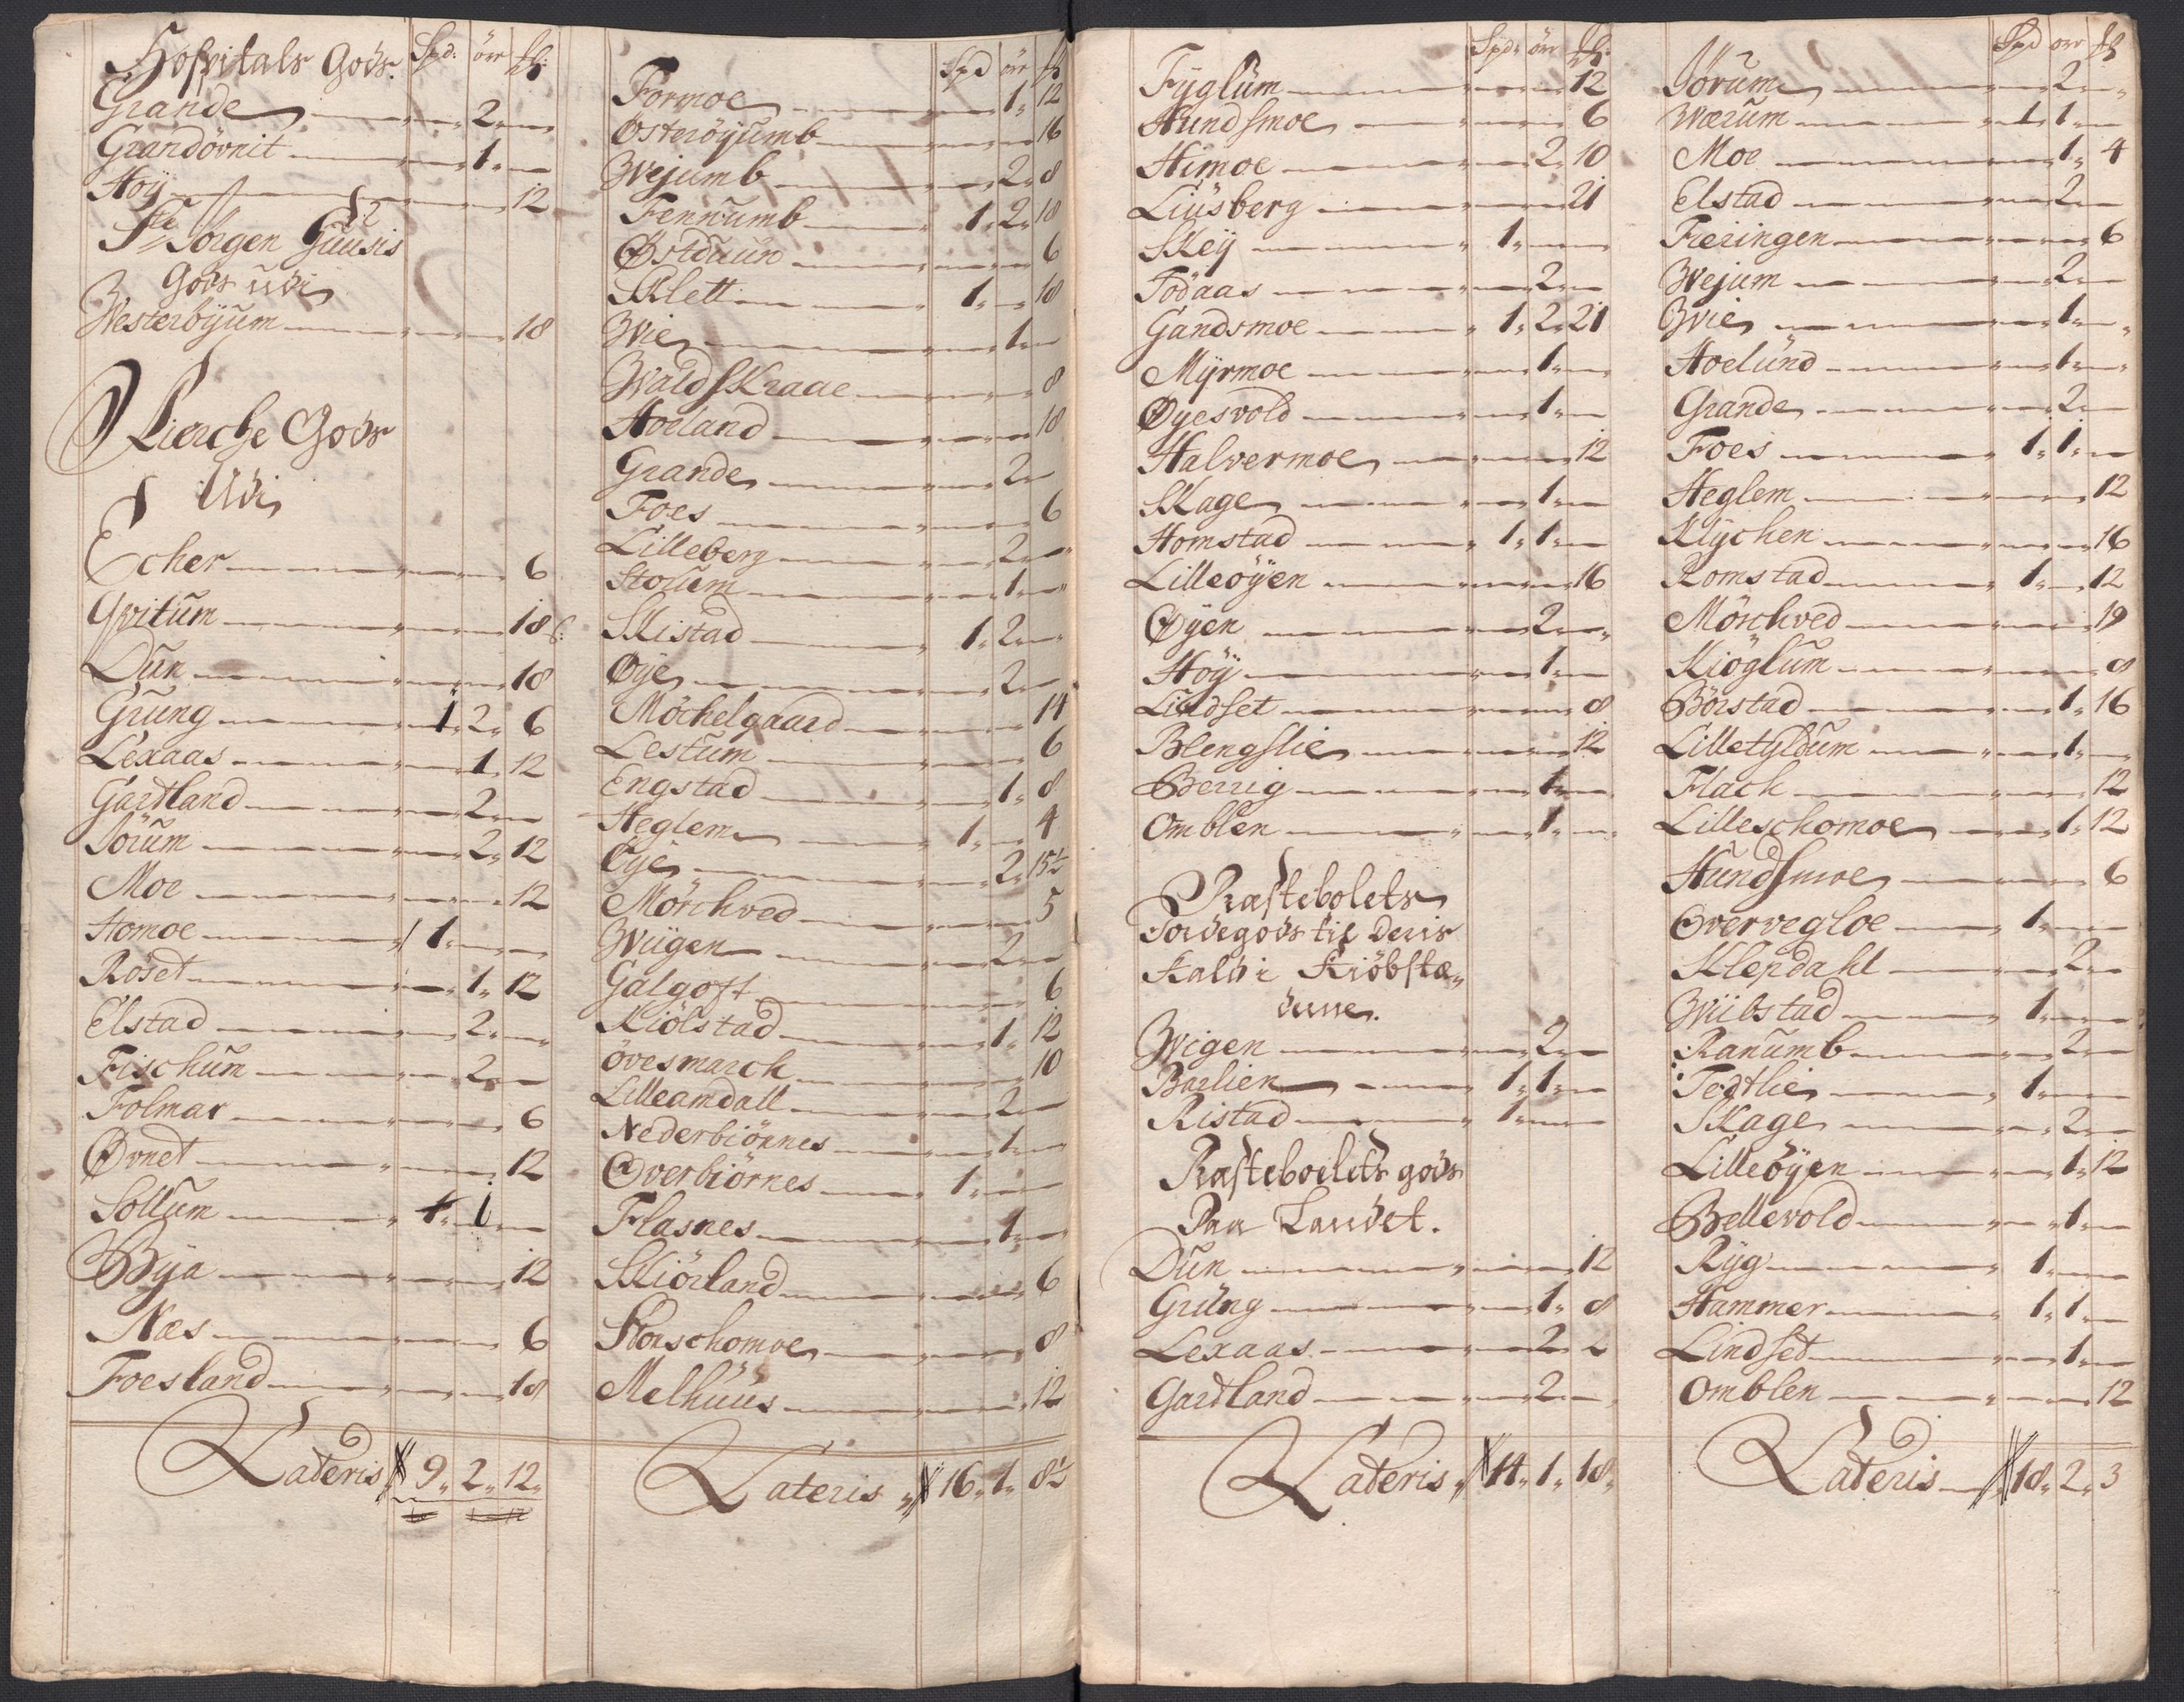 Hospitals Gods. Spd: ör ß:
Grande 2
Grandövnit 1
Höÿ 12
Ste Jörgen Huusis
Gods udi
Westerbÿum 18
Kierche Gods
Udi
Echer 6
Qvitum 18
Dun 18
Grung 1 2 6
Lexaas 1 12
Gartland 2
Jörum 2 12
Moe 12
Homoe 1
Röset 1 12
Elstad 2
Fischum 2
Folmar 6
Øvnet 12
Sollum 1
Bÿa 12
Næs 6
Foesland 18
Lateris 9 2 12
Spd ör ß
Formoe 1 12
Østeröÿumb 16
Wejumb 2 8
Fennumb 1 2 18
Østduun 6
Klett 1 18
Wie 1
WaldsKraae 8
Hoeland 18
Grande 2
Foes 6
Lilleberg 2
Storum 1
Skistad 1 2
Øÿe 2
Möchelgaard 14
Lestum 6
Engstad 1 8
Heglem 1 4
Øÿe 2 15½
Mörchved 5
Wiigen 2
Galgoft 6
Kiölstad 1 12
övesmarch 10
Lilleamdall 2
Nederbiörnes 1
Overbiörnes 1
Flasnes 1
Skiörland 6
Storschomoe 8
Melhuus 12
Lateris 16 1 8½
Spd: ör ß:
Fÿglum 12
Hundsmoe 6
Himoe 2 10
Liusberg 21
Skeÿ 1
Födaas 2
Gandsmoe 1 2 21
Mÿrmoe 1
Øÿesvold 1
Halvermoe 12
Skage 1
Homstad 1 1
Lilleöÿen 16
Øÿen 2
Höÿ 1
Lindset 8
Blengslie 12
Berrig 1
Omblen 1
Præstebolets
Jordegods til deris
Kald i Kiöbstæ
derne.
Wigen 2
Barlien 1 1
Ristad 1
Præsteboelets gods
Paa Landet.
Dun 12
Grung 1 8
Lexaas 2 2
Gartland 2
Lateris 14 1 18
Spd ör ß
Jörum 2
Wærum 1 1
Moe 1 4
Elstad 2
Fieringen 6
Wejum 2
Wie 1
Hoelund 1
Grande 2
Foes 1 1
Heglem 12
Klÿchen 16
Romstad 1 12
Mörchved 19
Kiöglum 8
Börstad 1 16
Lilletyldum 1
Flach 12
Lilleschomoe 1 12
Hundsmoe 6
Overvegloe 1
Klepdahl 2
Wiibstad 1
Ranumb 2
Tedtlie 1
Skage 2
Lilleöÿen 1 12
Bellevold 1
Rÿg 1
Hammer 1 1
Lindset 1
Omblen 12
Lateris 18 2 3